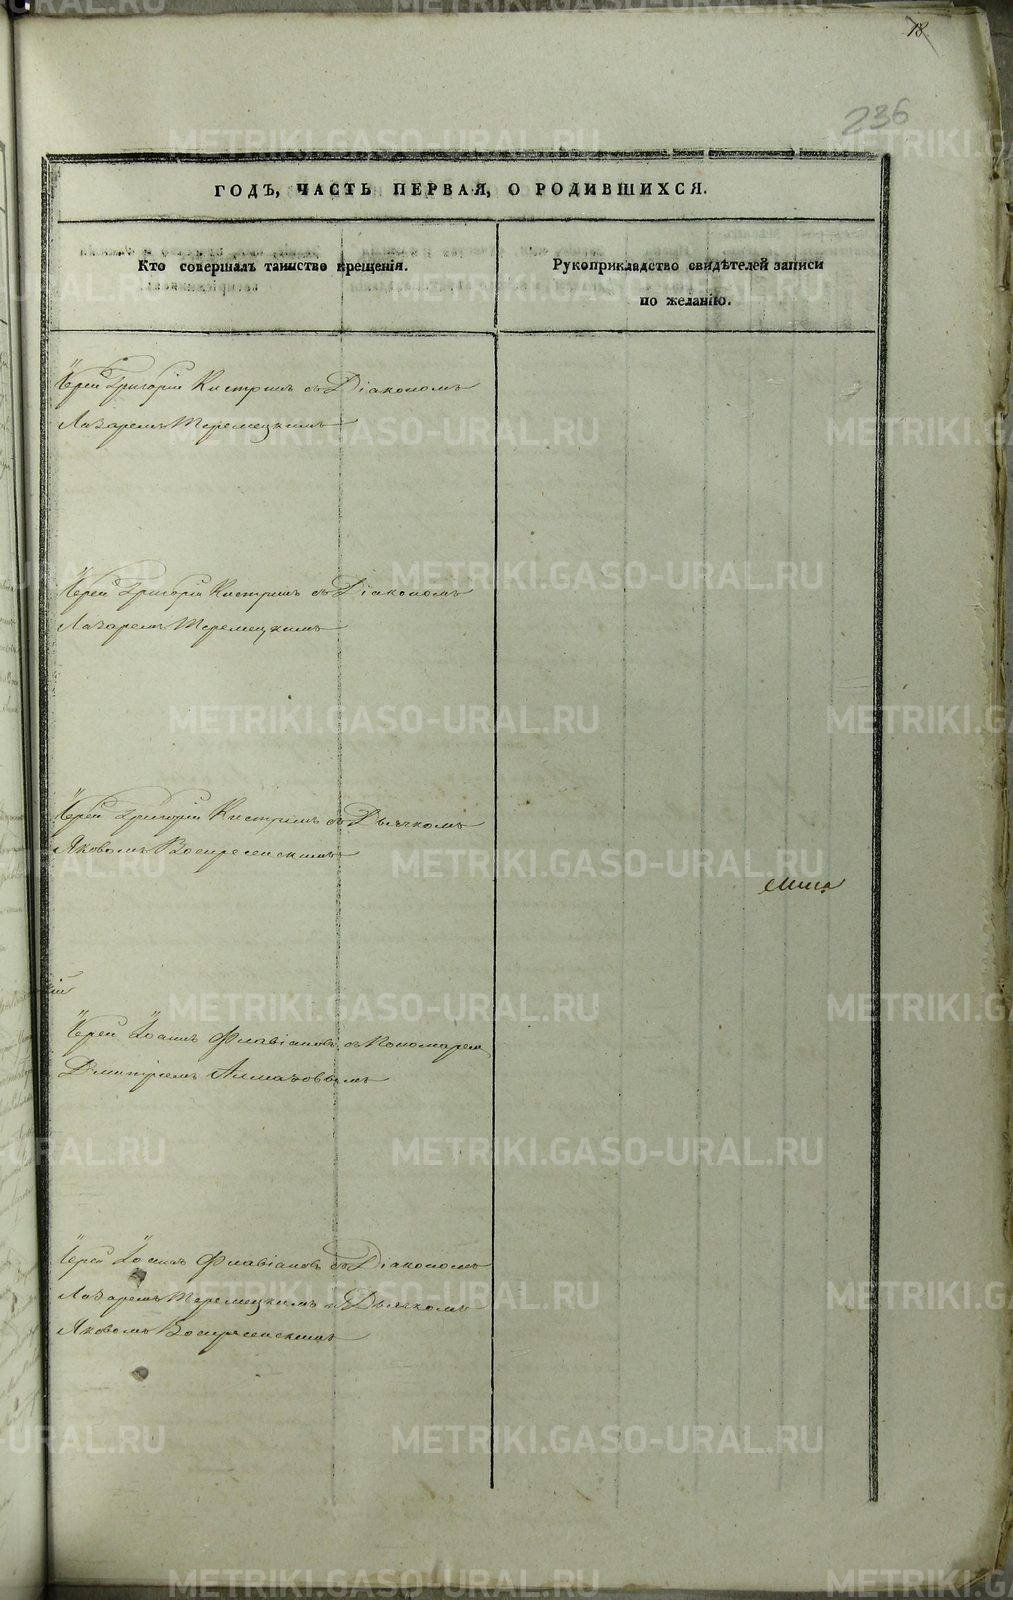 18
236
ГОДЪ, ЧАСТЬ ПЕРВАЯ, О РОДИВШИХСЯ.
Кто совершалъ таинство крещенія.
Рукоприкладство свидѣтелей записи
по желанію.
Іерей Григорій Кистринъ съ Діакономъ
Лазаремъ Теремецкимъ
Іерей Григорій Кистринъ съ Діакономъ
Лазаремъ Теремецкимъ
Іерей Григорій Кистринъ съ Дьячкомъ
Яковомъ Воскресенскимъ
Іерей Іоаннъ Флавіановъ съ Пономарем
Дмитріемъ Алмазовымъ
Іерей Іоаннъ Флавіановъ съ Діакономъ
Лазаремъ Теремецкимъ и Дьячкомъ
Яковомъ Воскресенскимъ
METRIKI.GASO-URAL.RU